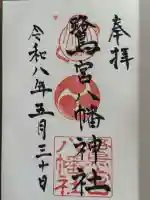 奉拝
鷺宮八幡神社
令和八年五月三十日